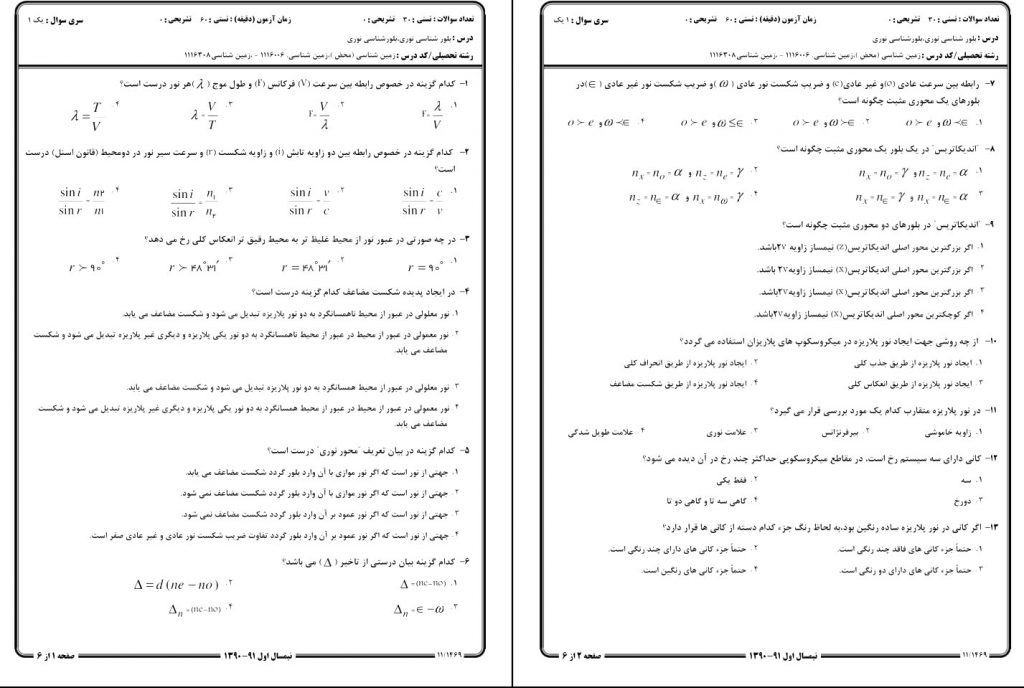 تعداد سوالات : تستی : ۳۰ تشریحی : ۰
زمان آزمون (دقیقه) : تستی : ۶۰ تشریحی : ۰
سری سوال : ۱ یک
درس : بلور شناسی نوری،بلورشناسی نوری
رشته تحصیلی/کد درس : زمین شناسی (محض )،زمین شناسی، ۱۱۱۶۰۰۶ - ،زمین شناسی۱۱۱۶۳۰۸
۱- کدام گزینه در خصوص رابطه بین سرعت (V) فرکانس (F) و طول موج ( λ )هر نور درست است؟
۱. F= λ/V
۲. F= V/λ
۳. λ = V/T
۴. λ = T/V
۲- کدام گزینه در خصوص رابطه بین دو زاویه تابش (i) و زاویه شکست (r) و سرعت سیر نور در دومحیط (قانون اسنل) درست
است؟
۱. sin i / sin r = c / v
۲. sin i / sin r = v / c
۳. sin i / sin r = n۱ / n۲
۴. sin i / sin r = n۲ / n۱
۳- در چه صورتی در عبور نور از محیط غلیظ تر به محیط رقیق تر انعکاس کلی رخ می دهد؟
۱. r = ۹۰°
۲. r = ۴۸°۳۱′
۳. r ≻ ۴۸°۳۱′
۴. r ≻ ۹۰°
۴- در ایجاد پدیده شکست مضاعف کدام گزینه درست است؟
۱. نور معلولی در عبور از محیط ناهمسانگرد به دو نور پلاریزه تبدیل می شود و شکست مضاعف می یابد.
۲. نور معمولی در عبور از محیط در عبور از محیط ناهمسانگرد به دو نور یکی پلاریزه و دیگری غیر پلاریزه تبدیل می شود و شکست
مضاعف می یابد.
۳. نور معلولی در عبور از محیط همسانگرد به دو نور پلاریزه تبدیل می شود و شکست مضاعف می یابد.
۴. نور معمولی در عبور از محیط در عبور از محیط همسانگرد به دو نور یکی پلاریزه و دیگری غیر پلاریزه تبدیل می شود و شکست
مضاعف می یابد.
۵- کدام گزینه در بیان تعریف "محور نوری" درست است؟
۱. جهتی از نور است که اگر نور موازی با آن وارد بلور گردد شکست مضاعف می یابد.
۲. جهتی از نور است که اگر نور موازی با آن وارد بلور گردد شکست مضاعف نمی شود.
۳. جهتی از نور است که اگر نور عمود بر آن وارد بلور گردد شکست مضاعف نمی شود.
۴. جهتی از نور است که اگر نور عمود بر آن وارد بلور گردد تفاوت ضریب شکست نور عادی و غیر عادی صفر است.
۶- کدام گزینه بیان درستی از تاخیر ( Δ ) می باشد؟
۱. Δ =(ne-no)
۲. Δ = d (ne − no)
۳. Δn =∈ −ω
۴. Δn =(ne-no)
۱۱/۱۴۶۹
نیمسال اول ۹۱-۱۳۹۰
صفحه ۱ از ۶
تعداد سوالات : تستی : ۳۰ تشریحی : ۰
زمان آزمون (دقیقه) : تستی : ۶۰ تشریحی : ۰
سری سوال : ۱ یک
درس : بلور شناسی نوری،بلورشناسی نوری
رشته تحصیلی/کد درس : زمین شناسی (محض )،زمین شناسی، ۱۱۱۶۰۰۶ - ،زمین شناسی۱۱۱۶۳۰۸
۷- رابطه بین سرعت عادی (o)و غیر عادی(e) و ضریب شکست نور عادی ( ω )و ضریب شکست نور غیر عادی ( ∈ )در
بلورهای یک محوری مثبت چگونه است؟
۱. ω ≺∈ و o ≻ e
۲. ω ≻∈ و o ≻ e
۳. ω ≤∈ و o ≻ e
۴. ω ≺∈ و o ≻ e
۸- "اندیکاتریس" در یک بلور یک محوری مثبت چگونه است؟
۱. nx = no = γ و nz = ne = α
۲. nx = no = α و nz = ne = γ
۳. nx = n∈ = γ و nx = n∈ = α
۴. nz = n∈ = α و nx = nω = γ
۹- "اندیکاتریس" در بلورهای دو محوری مثبت چگونه است؟
۱. اگر بزرگترین محور اصلی اندیکاتریس(Z) نیمساز زاویه ۲Vباشد.
۲. اگر بزرگترین محور اصلی اندیکاتریس(X) نیمساز زاویه۲V باشد.
۳. اگر بزرگترین محور اصلی اندیکاتریس(X) نیمساز زاویه۲Vباشد.
۴. اگر کوچکترین محور اصلی اندیکاتریس(X) نیمساز زاویه۲Vباشد.
۱۰- از چه روشی جهت ایجاد نور پلاریزه در میکروسکوپ های پلاریزان استفاده می گردد؟
۱. ایجاد نور پلاریزه از طریق جذب کلی
۲. ایجاد نور پلاریزه از طریق انحراف کلی
۳. ایجاد نور پلاریزه از طریق انعکاس کلی
۴. ایجاد نور پلاریزه از طریق شکست مضاعف
۱۱- در نور پلاریزه متقارب کدام یک مورد بررسی قرار می گیرد؟
۱. زاویه خاموشی
۲. بیرفرنژانس
۳. علامت نوری
۴. علامت طویل شدگی
۱۲- کانی دارای سه سیستم رخ است، در مقاطع میکروسکوپی حداکثر چند رخ در آن دیده می شود؟
۱. سه
۲. فقط یکی
۳. دورخ
۴. گاهی سه تا و گاهی دو تا
۱۳- اگر کانی در نور پلاریزه ساده رنگین بود،به لحاظ رنگ جزء کدام دسته از کانی ها قرار دارد؟
۱. حتماً جزء کانی های فاقد چند رنگی است.
۲. حتماً جزء کانی های دارای چند رنگی است.
۳. حتماً جزء کانی های دارای دو رنگی است.
۴. حتماً جزء کانی های رنگین است.
۱۱/۱۴۶۹
نیمسال اول ۹۱-۱۳۹۰
صفحه ۲ از ۶